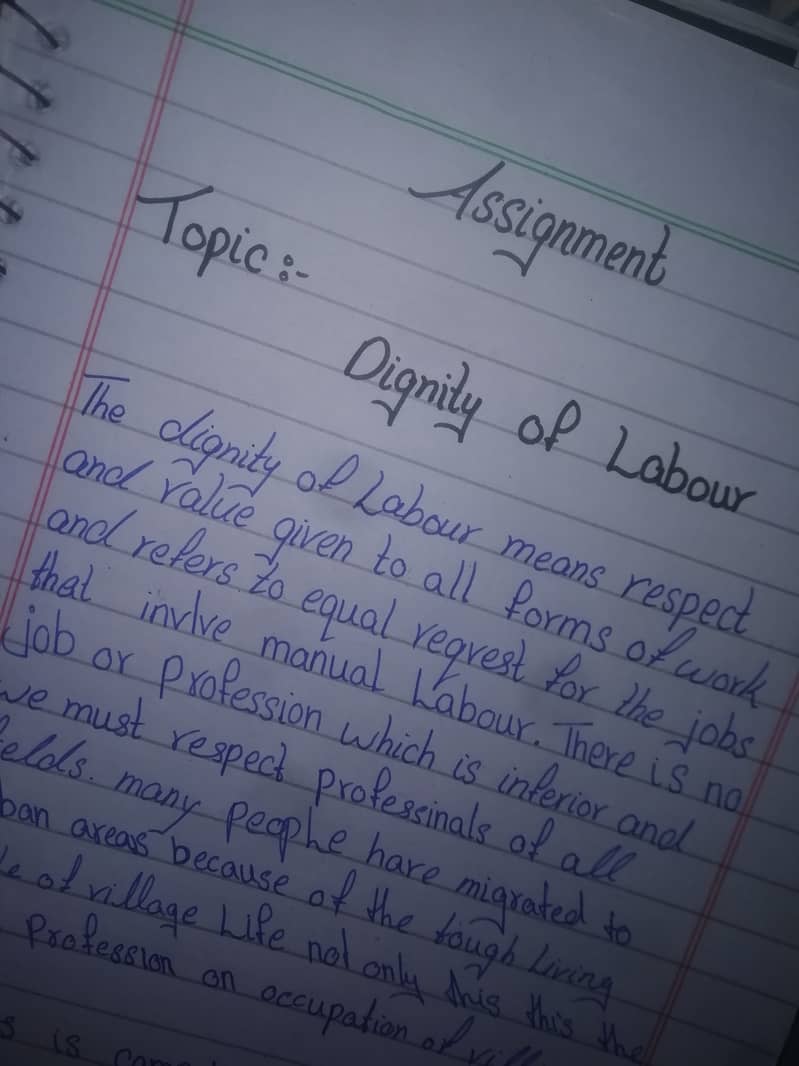 Assignment
Topic:-
Dignity of Labour
The dignity of Labour means respect
and value given to all forms of work
and refers to equal reqrest for the jobs
that invlve manual Labour. There is no
job or Profession which is inferior and
we must respect professinals of all
ields. many peaphe have migrated to
ban areas because of the tough Living
le of village Life not only this this the
Profession on occupation of vill
s is com